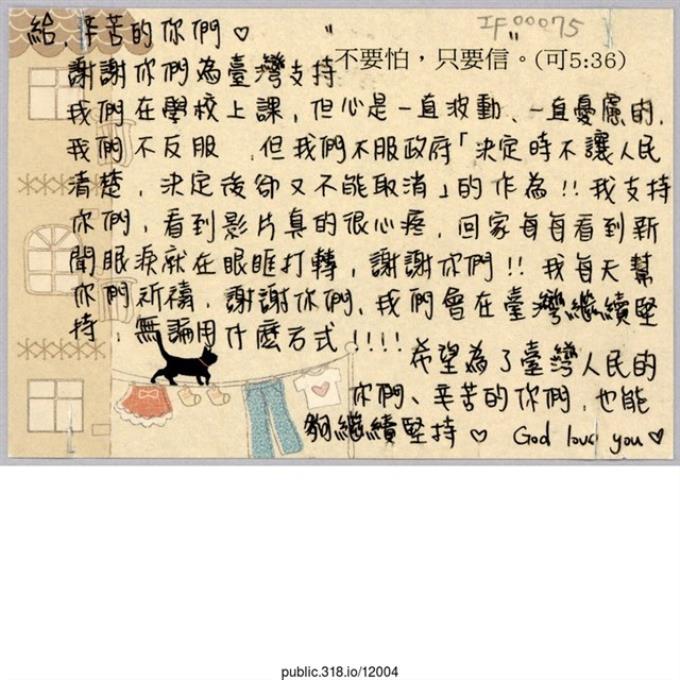 給,辛苦的你們♡
IF00075
"不要怕,只要信。"(可5:36)
謝謝你們為臺灣支持
我們在學校上課,但心是一直波動、一直憂慮的,
我們不反服,但我們不服政府「決定時不讓人民
清楚,決定後卻又不能取消」的作為!!我支持
你們,看到影片真的很心疼,回家每每看到新
聞眼淚就在眼眶打轉,謝謝你們!!我每天幫
你們祈禱,謝謝你們,我們會在臺灣繼續堅
持,無論用什麼方式!!!!
希望為了臺灣人民的
你們、辛苦的你們,也能
夠繼續堅持♡ God love you♡
public.318.io/12004